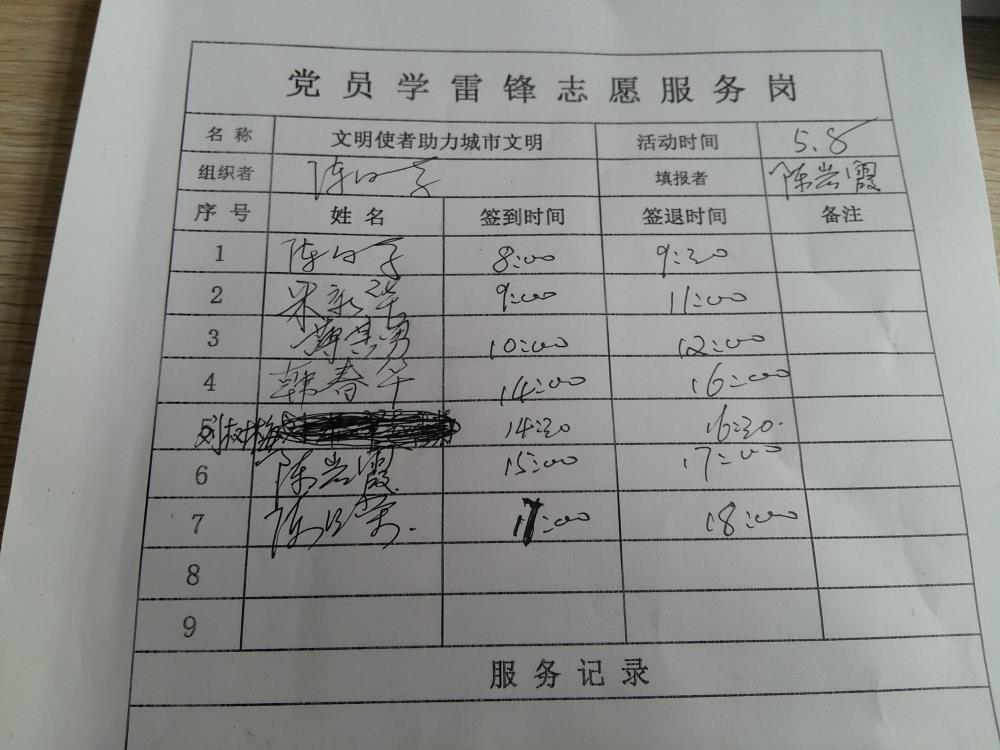 党员学雷锋志愿服务岗
名称 文明使者助力城市文明 活动时间 5.8
组织者 填报者 陈岩霞
序号 姓名 签到时间 签退时间 备注
1 8:00 9:30
2 9:00 11:00
3 10:00 12:00
4 韩春华 14:00 16:00
5 刘树梅 14:30 16:30.
6 陈岩霞 15:00 17:00
7 17:00 18:00
8
9
服务记录